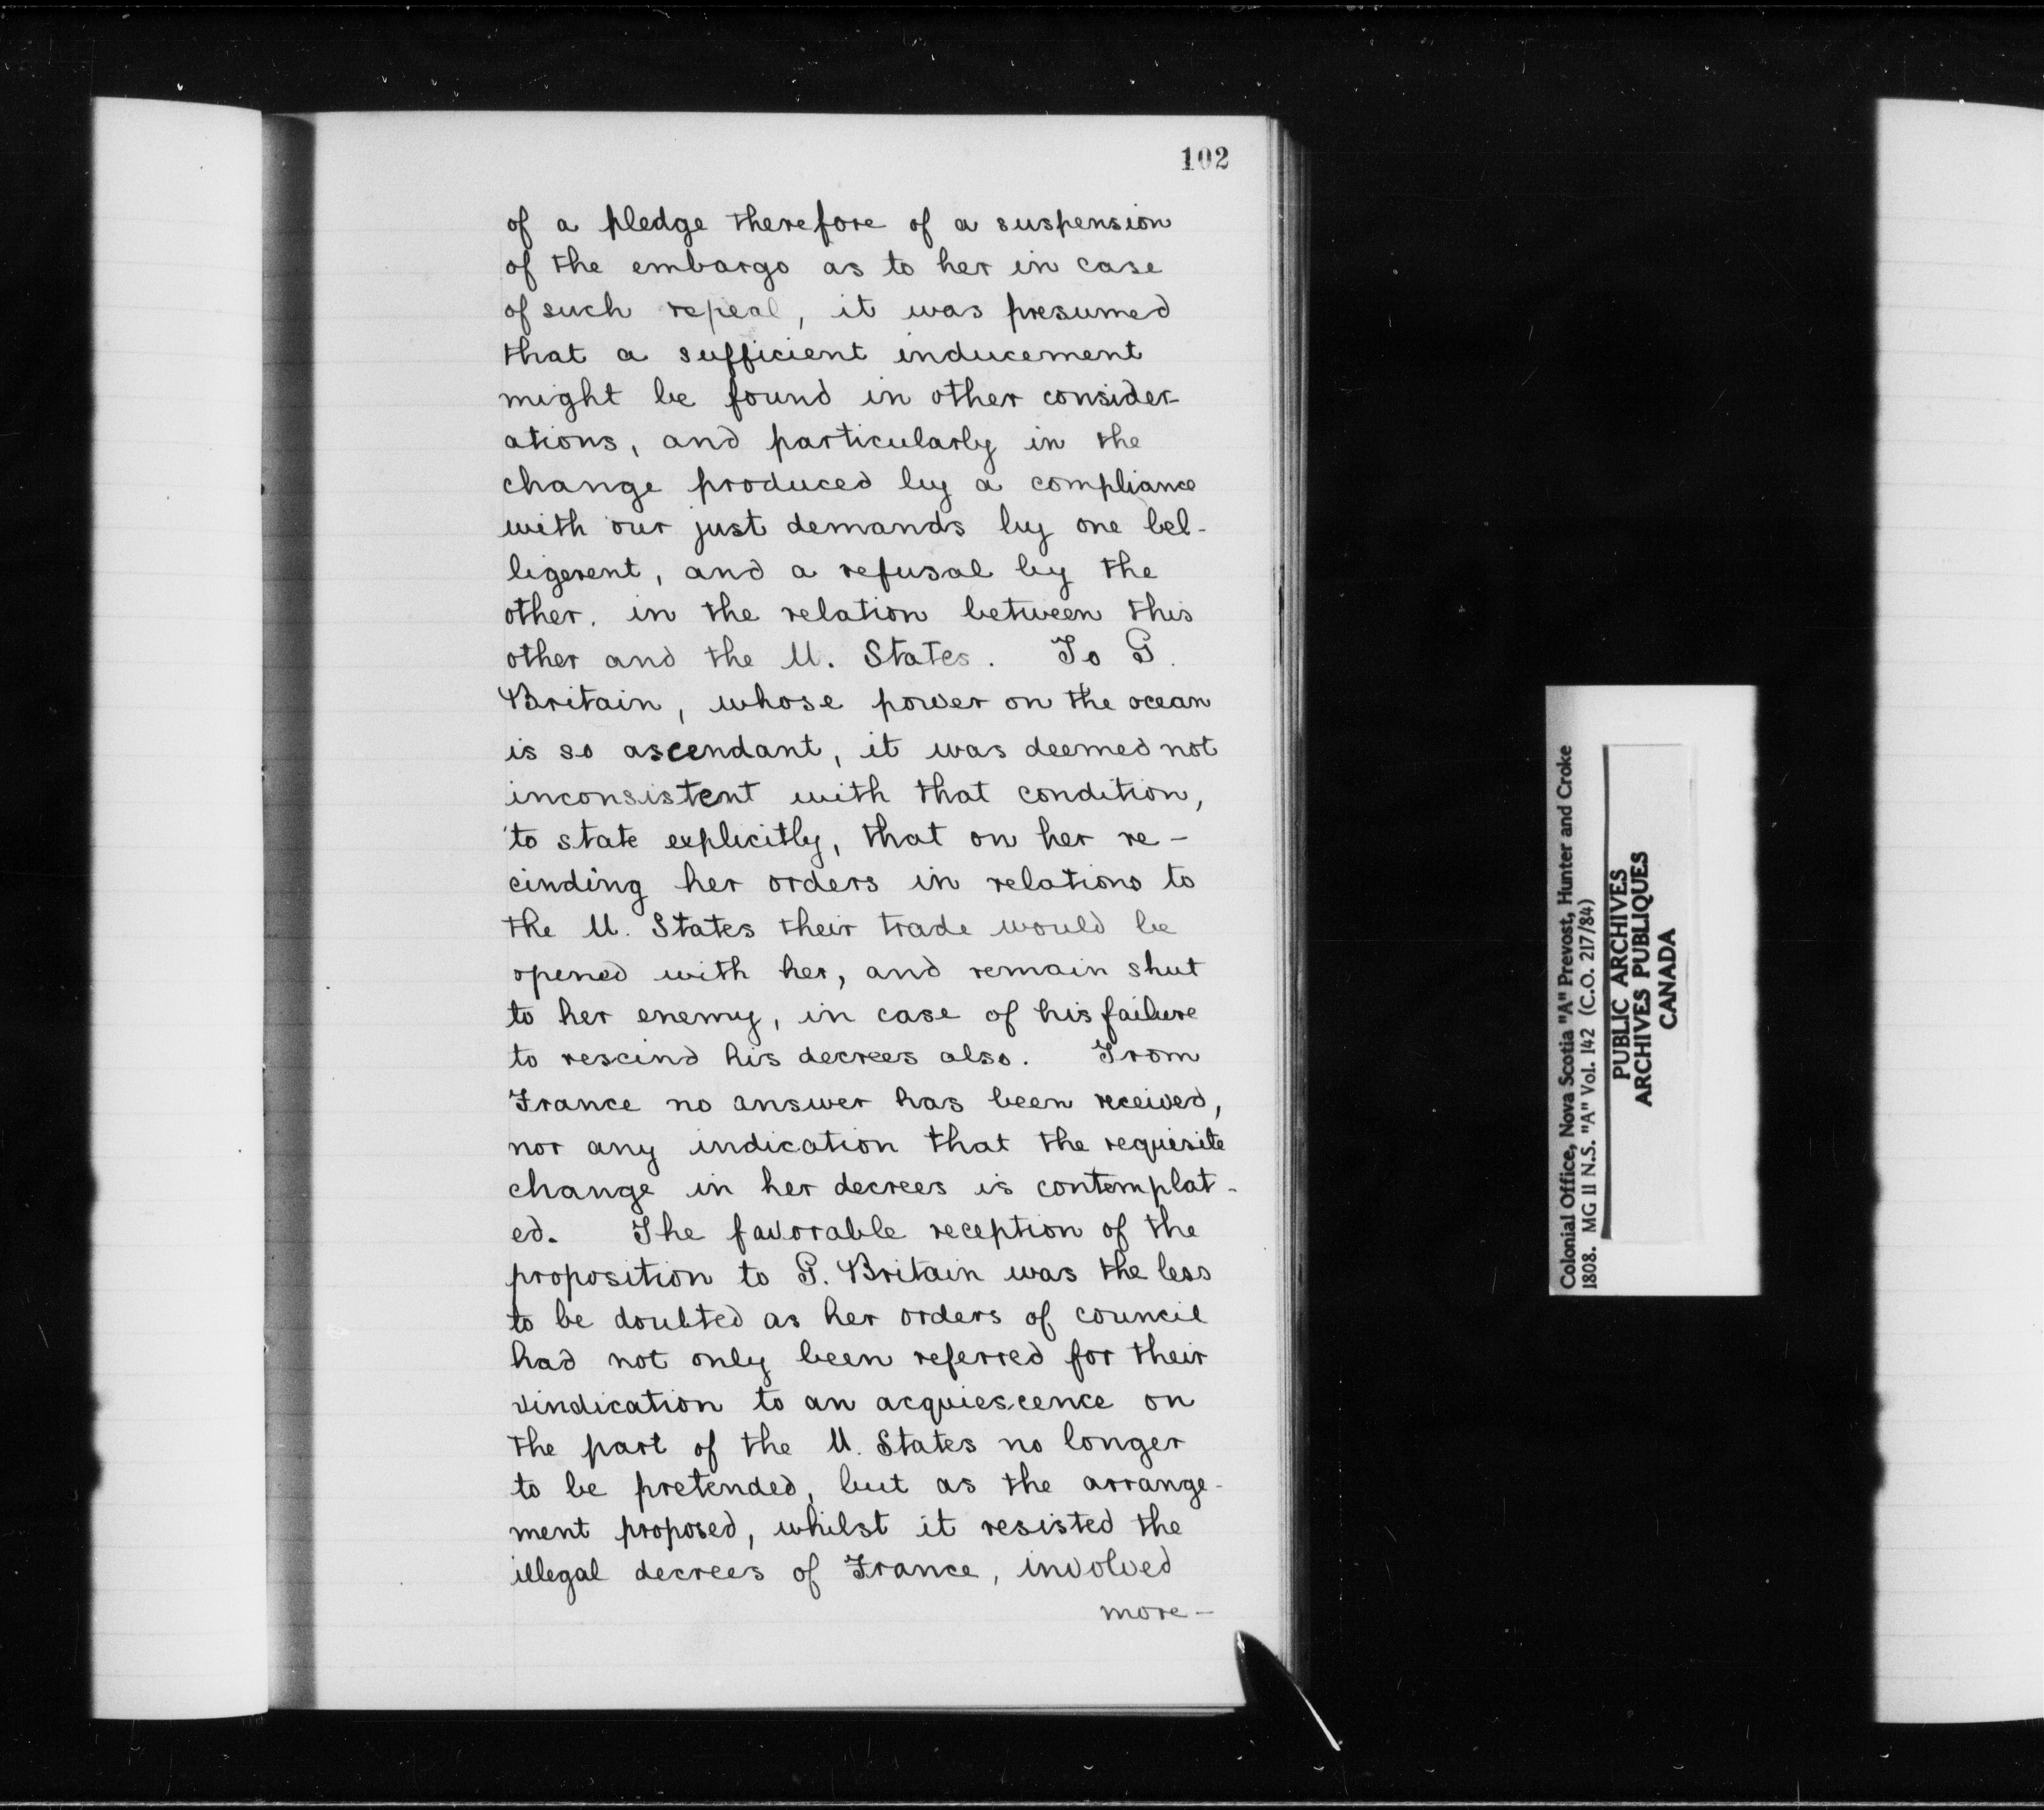 102
of a pledge therefore of a suspension
of the embargo as to her in case
of such repeal, it was presumed
that a sufficient inducement
might be found in other consider-
ations, and particularly in the
change produced by a compliance
with our just demands by one bel-
ligerent, and a refusal by the
other. in the relation between this
other and the U. States. To G.
Britain, whose power on the ocean
is so ascendant, it was deemed not
inconsistent with that condition,
to state explicitly, that on her re-
cinding her orders in relations to
the U. States their trade would be
opened with her, and remain shut
to her enemy, in case of his failure
to rescind his decrees also. From
France no answer has been received,
nor any indication that the requisite
change in her decrees is contemplat-
ed. The favorable reception of the
proposition to G. Britain was the less
to be doubted as her orders of council
had not only been referred for their
vindication to an acquiescence on
the part of the U. States no longer
to be pretended, but as the arrange-
ment proposed, whilst it resisted the
illegal decrees of France, involved
more-
Colonial Office, Nova Scotia "A" Prevost, Hunter and Croke
1808. MG 11 N.S. "A" Vol. 142 (C.O. 217/84)
PUBLIC ARCHIVES
ARCHIVES PUBLIQUES
CANADA